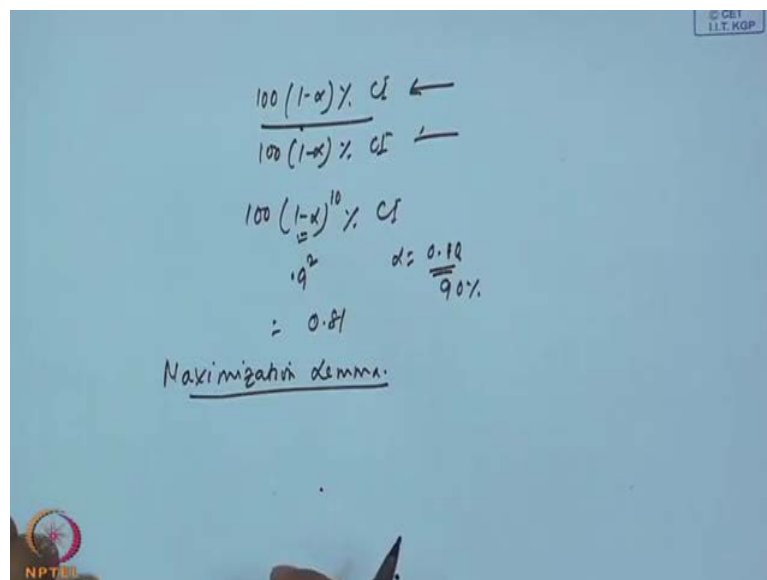 © CET
I.I.T. KGP
100 (1-α) % CI ←
100 (1-α) % CI
100 (1-α)^10 % CI
.9^2 α = 0.10
90%
= 0.81
Maximization Lemma.
NPTEL